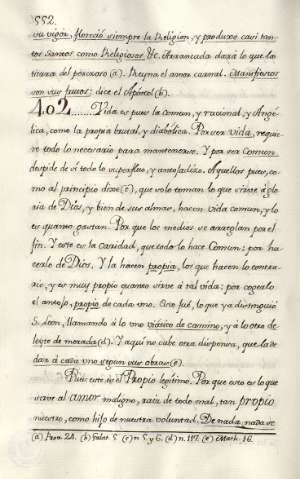 552.
su vigor, floreció siempre la Religion, y produxo casi tan-
tos Santos como Religiosos &c. Arrancada
del pecoraro (a). Reyna el amor carnal. Manifiestos
son sus frutos: dice el Apóstol (b).
402...... Vida es pues la comun, y racional, y Angé-
lica, como la propria brutal, y diabolica. Por ser vida, requie-
re todo lo necesario para mantenerse. Y por ser Comun,
despide de sí todo lo superfluo, y antojadizo. Aquellos pues, co-
mo al principio dixe (c), que solo toman lo que sirve á glo-
ria de Dios, y bien de sus almas, hacen vida comun, y lo
es quanto gastan. Por que los medios se arreglan por el
fin. Y este es la Caridad, que todo lo hace Comun: por ha-
cerlo de Dios. Y la hacen propia, los que hacen lo contra-
rio, y es muy propio quanto sirve á tal vida: por cogerlo
el antojo, propio de cada uno. Este fué, lo que ya distinguió
S. Leon, llamando á lo uno viático de camino, y á lo otro de-
leyte de morada (d). Y aqui no cabe otra dispensa, que la de
dar á cada uno segun sus obras (e).
este es el Propio legítimo. Por que este es lo que
sirve al amor maligno, raiz de todo mal, tan propio
nuestro, como hijo de nuestra voluntad. De nada, nada se
(a) Prov. 24. (b) Galat. 5. (c) n. 5. y 6. (d) n. 117. (e) Math. 16.